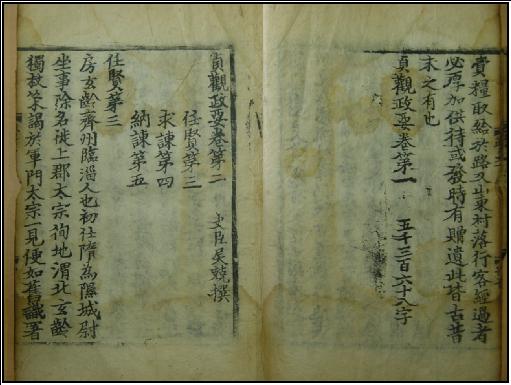 賫糧取然於路又山東村落行客經過者
必厚加供待或發時有贈遺此皆古昔
未之有也
貞觀政要卷第一 五千三百六十八字
貞觀政要卷第二 史臣吳兢撰
任賢第三
求諫第四
納諫第五
任賢第三
房玄齡齊州臨淄人也初仕隋為隰城尉
坐事除名徙上郡太宗徇地渭北玄齡
獨杖策謁於軍門太宗一見便如舊識署